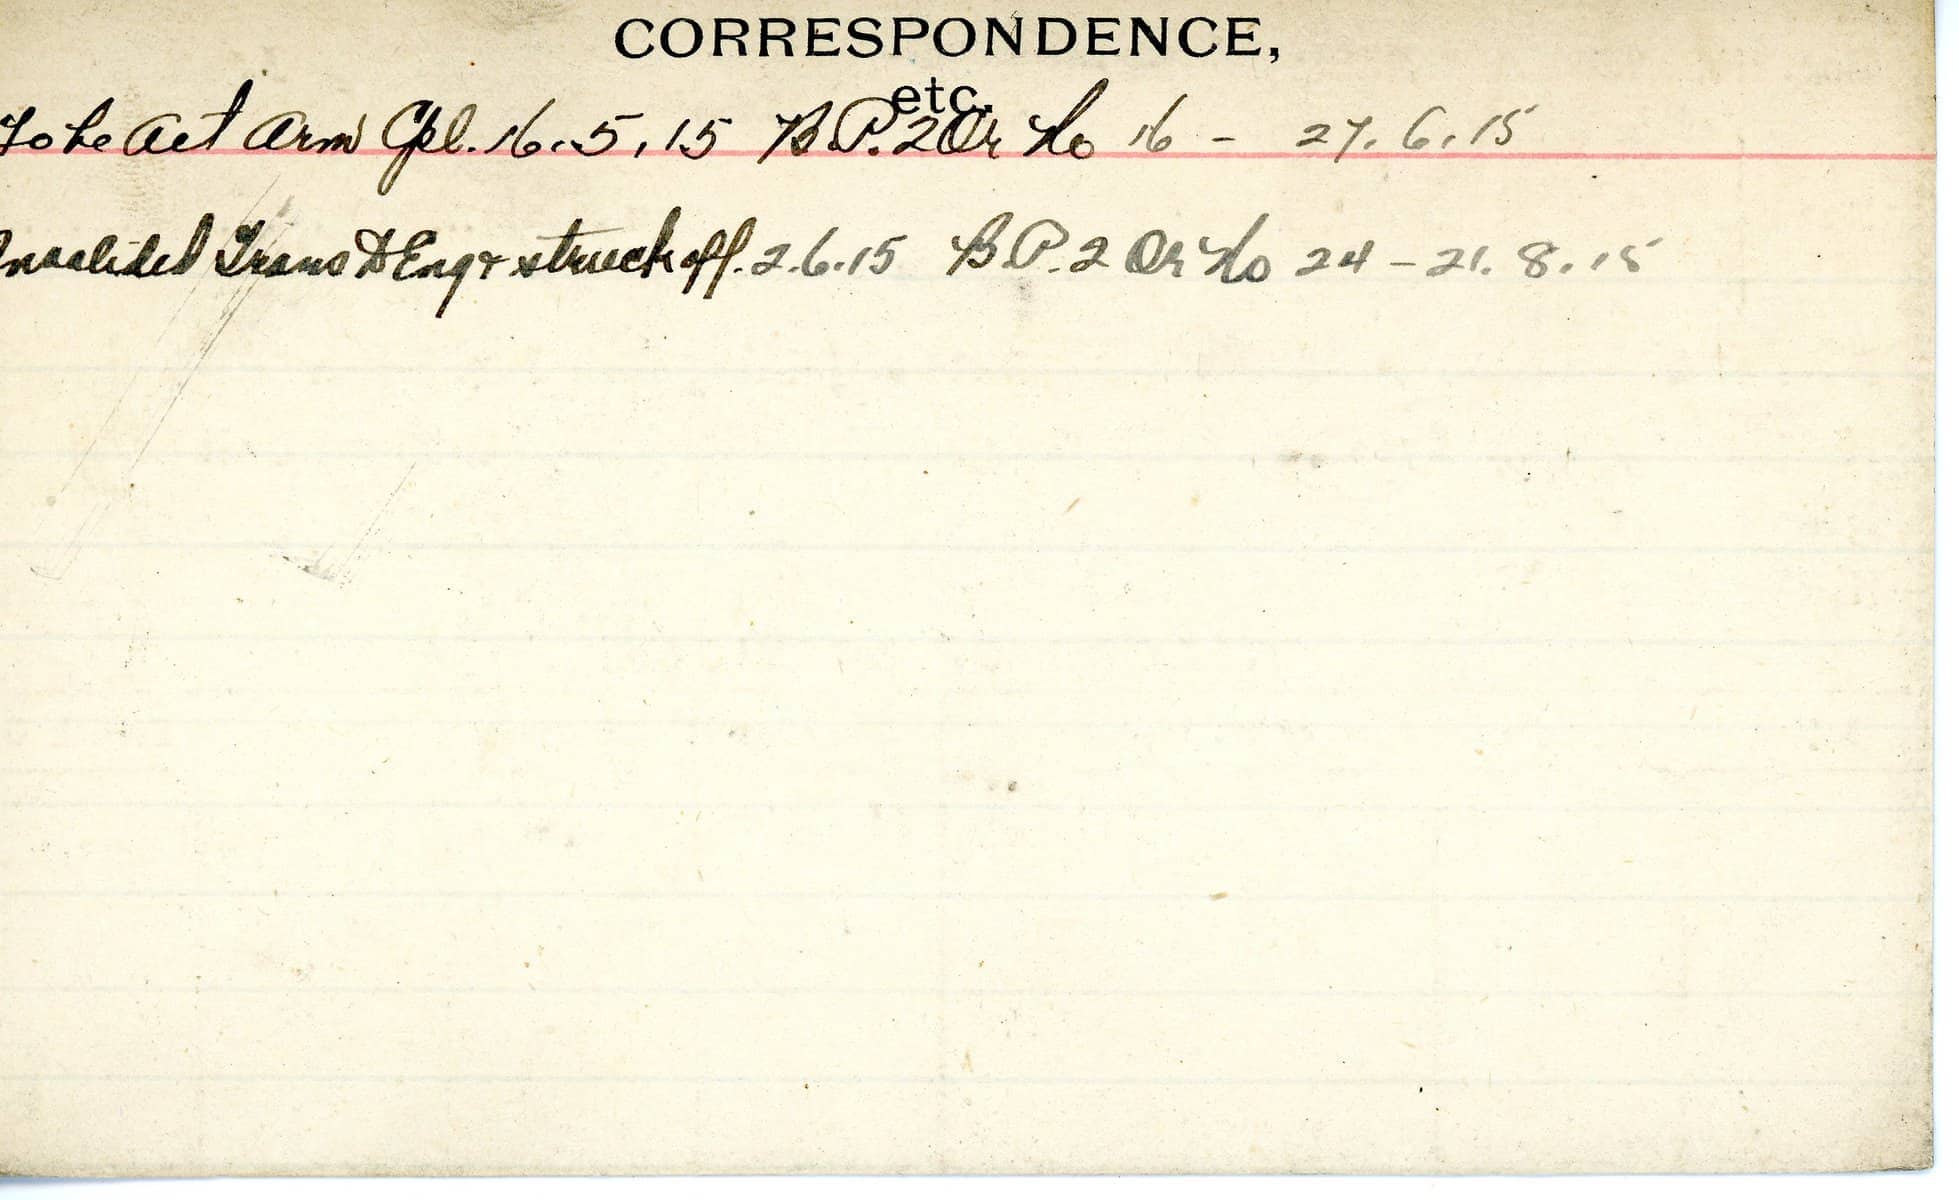 CORRESPONDENCE,
etc.
To be Act Arm Cpl. 16.5.15 B.P. 2 Or No 16 - 27.6.15
Invalided Trans to Eng & struck off. 2.6.15 B.P. 2 Or No 24 - 21.8.15